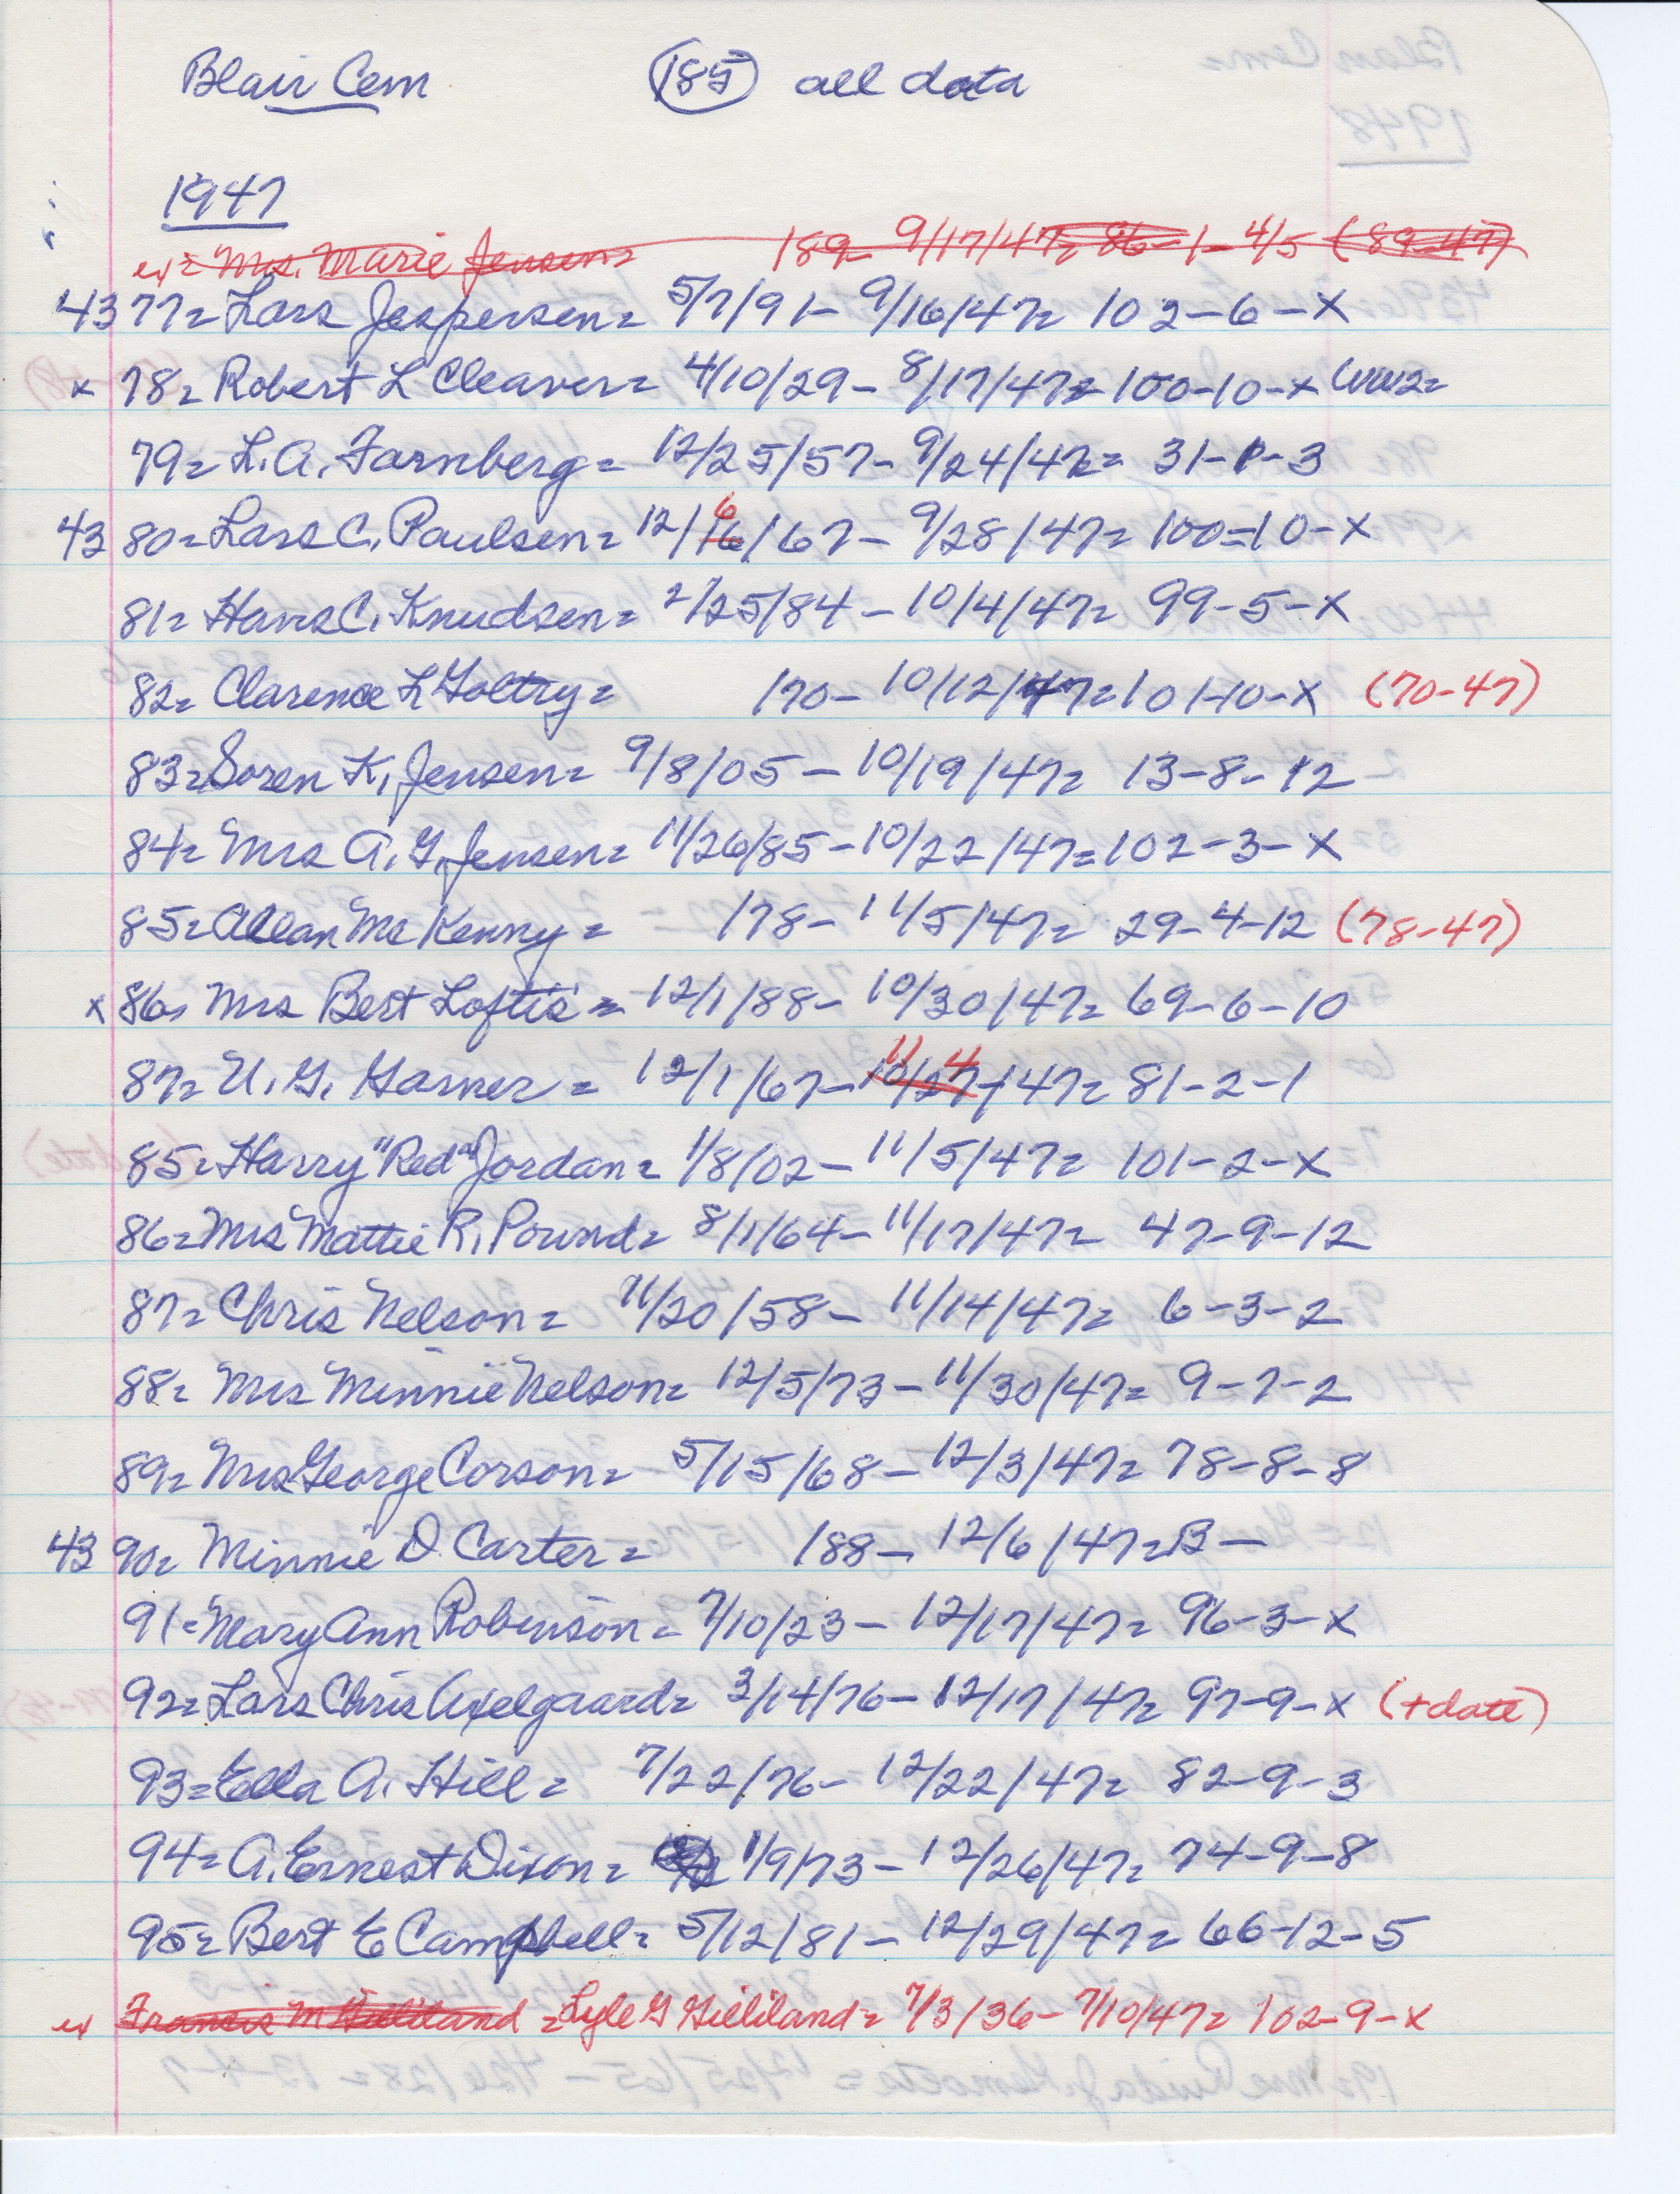 Blair Cem 185 all data
1947
ex= Mrs. Marie Jensen= 189- 9/17/47= 86-1-4/5 (89-47)
4377= Lars Jespersen= 5/7/91- 9/16/47= 102-6-X
x 78= Robert L Cleaver= 4/10/29- 8/17/47= 100-10-X WW2=
79= L.A. Farnberg= 12/25/57- 9/24/47= 31-1-3
43 80= Lars C. Paulsen= 12/16 6/67- 9/28/47= 100=10-X
81= Hans C. Knudsen= 2/25/84- 10/4/47= 99-5-X
82= Clarence L Goltry= 170- 10/12/47= 101-10-X (70-47)
83= Soren K. Jensen= 9/8/05- 10/19/47= 13-8-12
84= Mrs A. G. Jensen= 11/26/85-10/22/47= 102-3-X
85= Allan McKenny= 178- 11/5/47= 29-4-12 (78-47)
x 86= Mrs Bert Loftis= 12/1/88- 10/30/47= 69-6-10
87= U. G. Garner= 12/1/67- 10/27 11/4/47= 81-2-1
85= Harry "Red" Jordan= 1/8/02- 11/5/47= 101-2-X
86= Mrs Mattie R. Pound= 8/1/64- 11/17/47= 47-9-12
87= Chris Nelson= 11/20/58- 11/14/47= 6-3-2
88= Mrs Minnie Nelson= 12/5/73- 11/30/47= 9-7-2
89= Mrs George Corson= 5/15/68- 12/3/47= 78-8-8
43 90= Minnie D. Carter= 188- 12/6/47= B-
91= Mary Ann Robinson= 7/10/23- 12/17/47= 96-3-X
92= Lars Chris Axelgaard= 3/14/76- 12/17/47= 97-9-X (+date)
93= Ella A. Hill= 7/22/76- 12/22/47= 82-9-3
94= A. Ernest Dixon= 1/9/73- 12/26/47= 74-9-8
95= Bert E Campbell= 5/12/81- 12/29/47= 66-12-5
ex Francis M Gilliland =Lyle G Gilliland= 7/3/36- 7/10/47= 102-9-X